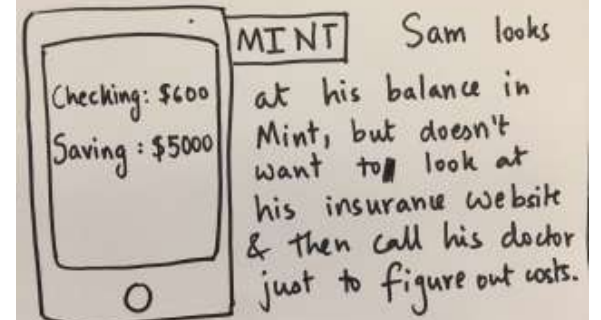 Checking: $600
Saving: $5000
MINT
Sam looks
at his balance in
Mint, but doesn't
want to look at
his insurance website
& then call his doctor
just to figure out costs.